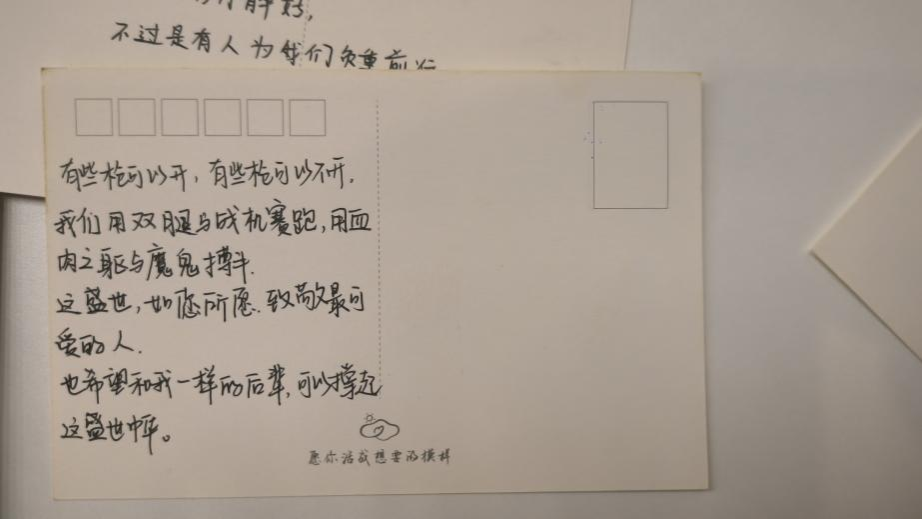 静好,
不过是有人为我们负重前行
有些枪可以开,有些枪可以不开.
我们用双腿与战机赛跑,用血
肉之躯与魔鬼搏斗.
这盛世,如您所愿.致敬最可
爱的人.
也希望和我一样的后辈,可以撑起
这盛世中华。
愿你活成想要的模样